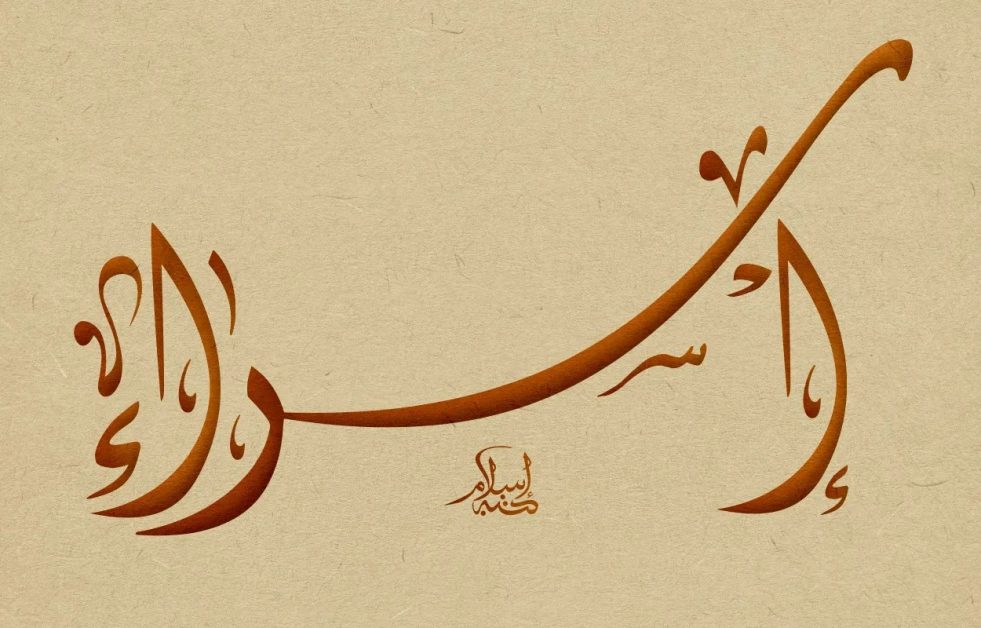 إسراء
كتبه إسلام